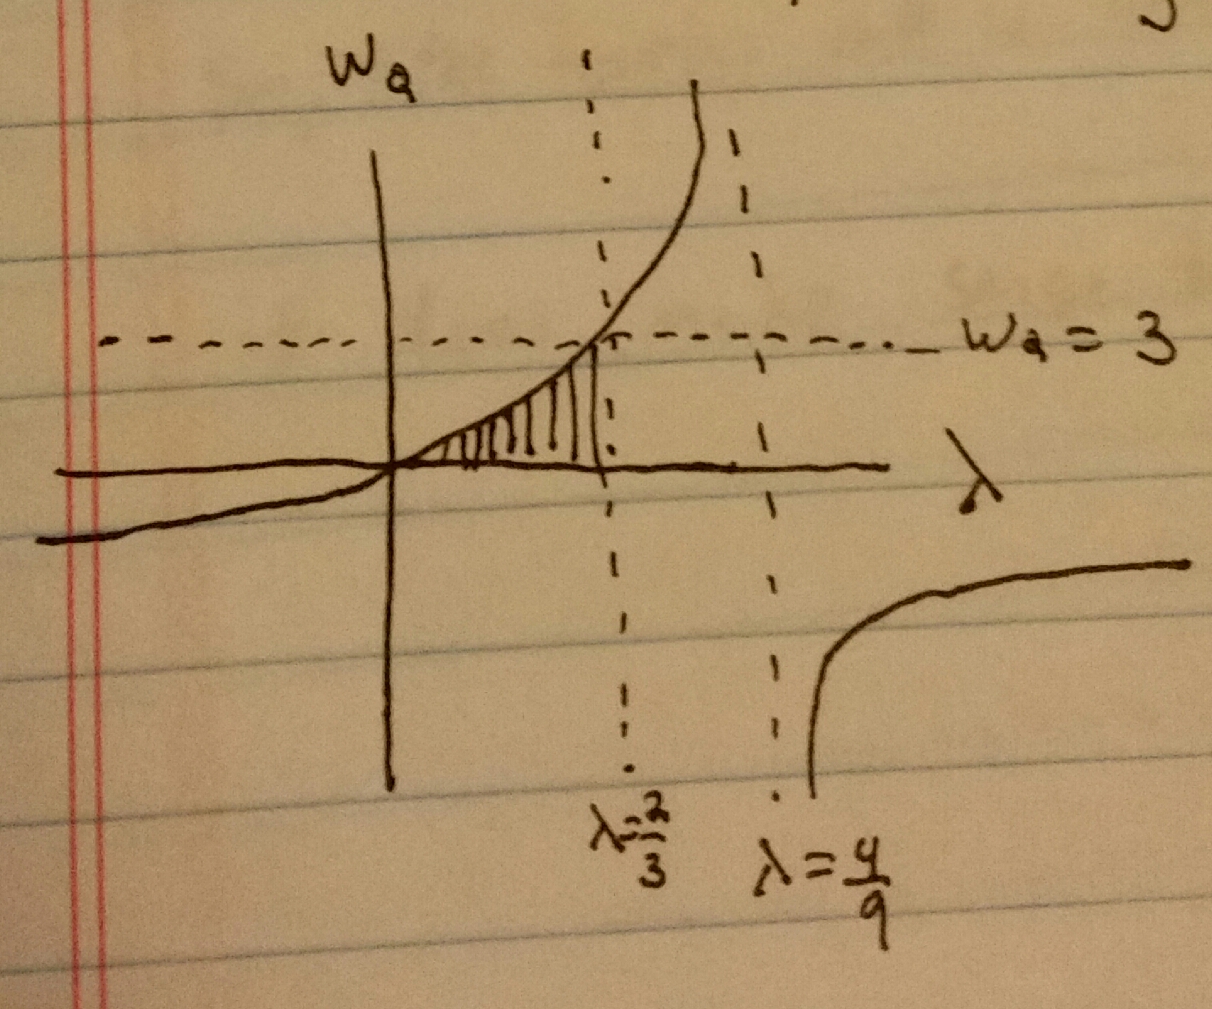 Wq
Wq = 3
λ
λ = 2/3
λ = 4/9